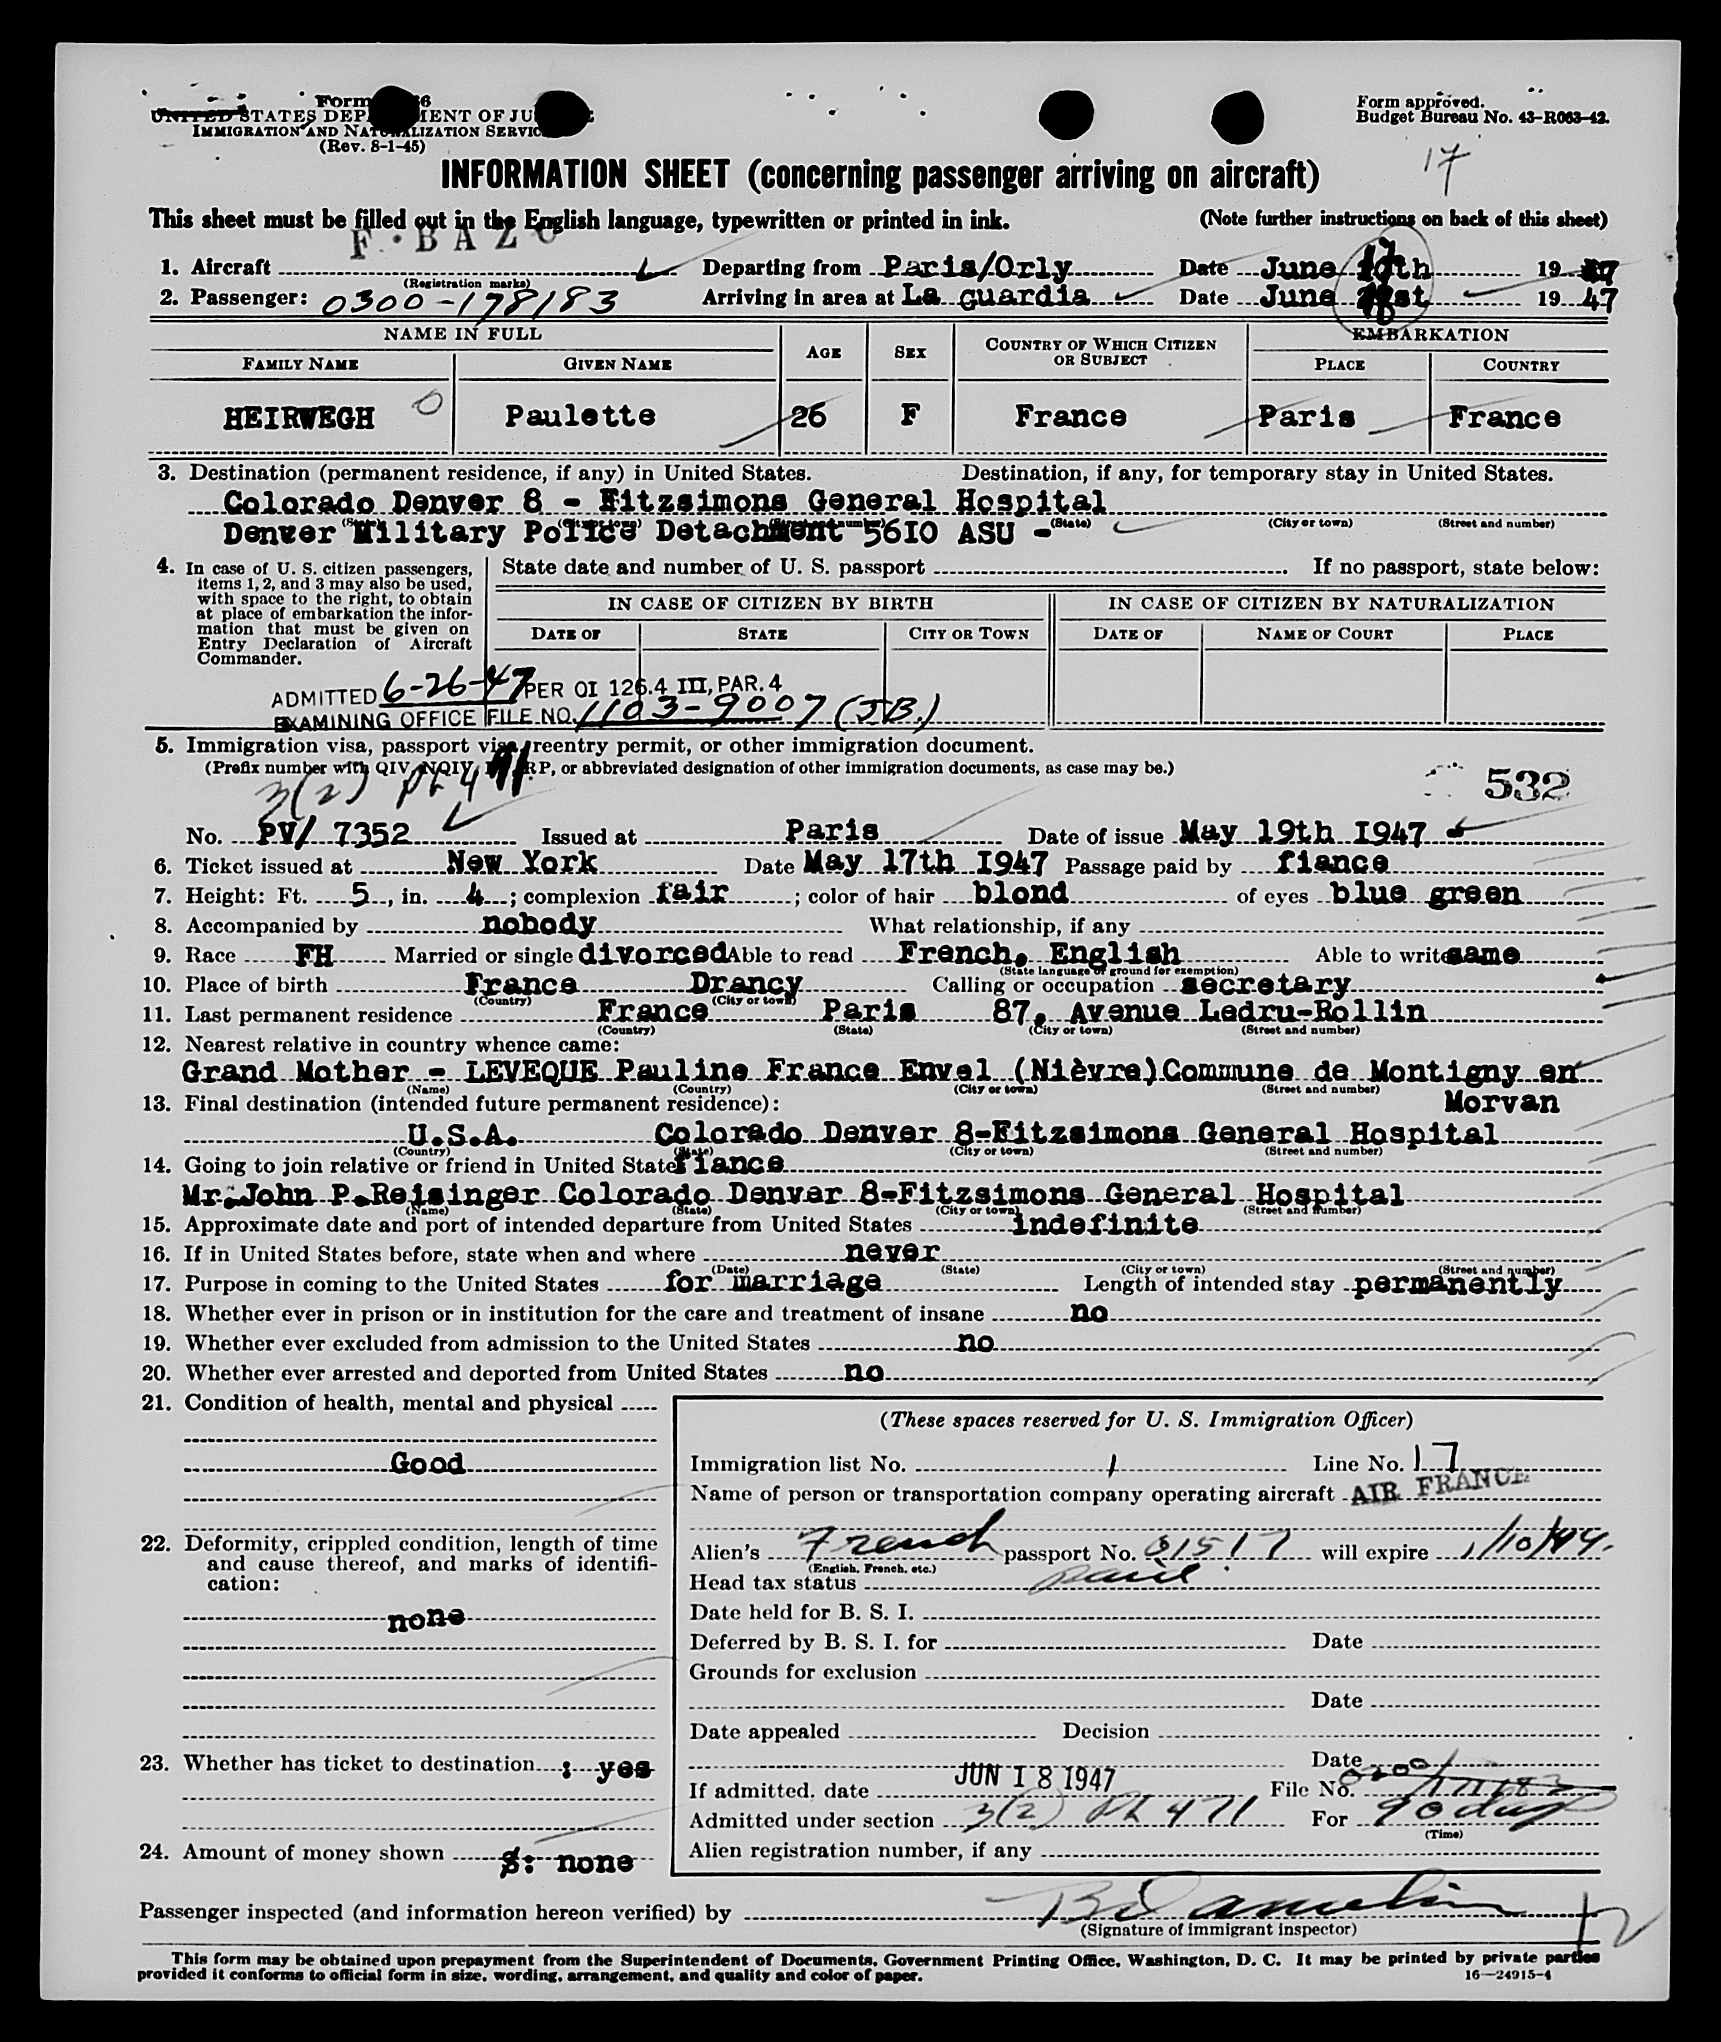 Form
UNITED STATES DEPARTMENT OF JUSTICE
IMMIGRATION AND NATURALIZATION SERVICE
(Rev. 8-1-45)
Form approved.
Budget Bureau No. 43-R063-42.
17
INFORMATION SHEET (concerning passenger arriving on aircraft)
This sheet must be filled out in the English language, typewritten or printed in ink. (Note further instructions on back of this sheet)
F. BAZ
1. Aircraft Departing from Paris/Orly Date June 17th 19 47
(Registration marks)
2. Passenger: 0300-178183 Arriving in area at La guardia Date June 19 47
NAME IN FULL AGE SEX COUNTRY OF WHICH CITIZEN OR SUBJECT EMBARKATION
FAMILY NAME GIVEN NAME PLACE COUNTRY
HEIRWEGH Paulette 26 F France Paris France
3. Destination (permanent residence, if any) in United States. Destination, if any, for temporary stay in United States.
Colorado Denver 8 - Fitzsimons General Hospital
(State) (City or town) (Street and number) (State) (City or town) (Street and number)
Denver Military Police Detachment 56IO ASU -
4. In case of U. S. citizen passengers, items 1, 2, and 3 may also be used, with space to the right, to obtain at place of embarkation the information that must be given on Entry Declaration of Aircraft Commander.
State date and number of U. S. passport If no passport, state below:
IN CASE OF CITIZEN BY BIRTH IN CASE OF CITIZEN BY NATURALIZATION
DATE OF STATE CITY OR TOWN DATE OF NAME OF COURT PLACE
ADMITTED 6-26-47 PER OI 126.4 III, PAR. 4
EXAMINING OFFICE FILE NO. 1103-9007 (JB.)
5. Immigration visa, passport visa, reentry permit, or other immigration document.
(Prefix number with QIV, NQIV, RP, or abbreviated designation of other immigration documents, as case may be.)
3(2) PL 471
532
No. PV/ 7352 Issued at Paris Date of issue May 19th I947 -
6. Ticket issued at New York Date May 17th I947 Passage paid by fiance
7. Height: Ft. 5, in. 4; complexion fair; color of hair blond of eyes blue green
8. Accompanied by nobody What relationship, if any
9. Race FH Married or single divorced Able to read French, English Able to write same
(State language or ground for exemption)
10. Place of birth France Drancy Calling or occupation secretary
(Country) (City or town)
11. Last permanent residence France Paris 87, Avenue Ledru-Rollin
(Country) (State) (City or town) (Street and number)
12. Nearest relative in country whence came:
Grand Mother - LEVEQUE Pauline France Envel (Nièvre) Commune de Montigny en
(Name) (Country) (City or town) (Street and number)
Morvan
13. Final destination (intended future permanent residence):
U.S.A. Colorado Denver 8-Fitzsimons General Hospital
(Country) (State) (City or town) (Street and number)
14. Going to join relative or friend in United States fiance
Mr. John P.Reisinger Colorado Denver 8-Fitzsimons General Hospital
(Name) (State) (City or town) (Street and number)
15. Approximate date and port of intended departure from United States indefinite
16. If in United States before, state when and where never
(Date) (State) (City or town) (Street and number)
17. Purpose in coming to the United States for marriage Length of intended stay permanently
18. Whether ever in prison or in institution for the care and treatment of insane no
19. Whether ever excluded from admission to the United States no
20. Whether ever arrested and deported from United States no
21. Condition of health, mental and physical
Good
22. Deformity, crippled condition, length of time and cause thereof, and marks of identification:
none
23. Whether has ticket to destination : yes
24. Amount of money shown $: none
(These spaces reserved for U. S. Immigration Officer)
Immigration list No. 1 Line No. 17
Name of person or transportation company operating aircraft AIR FRANCE
Alien's French passport No. 81517 will expire 1/10/49.
(English, French, etc.)
Head tax status paid
Date held for B. S. I.
Deferred by B. S. I. for Date
Grounds for exclusion
Date
Date appealed Decision
Date
If admitted, date JUN 18 1947 File No. 0300/178183
Admitted under section 3(2) PL 471 For 90 days
(Time)
Alien registration number, if any
Passenger inspected (and information hereon verified) by
(Signature of immigrant inspector)
This form may be obtained upon prepayment from the Superintendent of Documents, Government Printing Office, Washington, D. C. It may be printed by private parties
provided it conforms to official form in size, wording, arrangement, and quality and color of paper. 16—24915-4